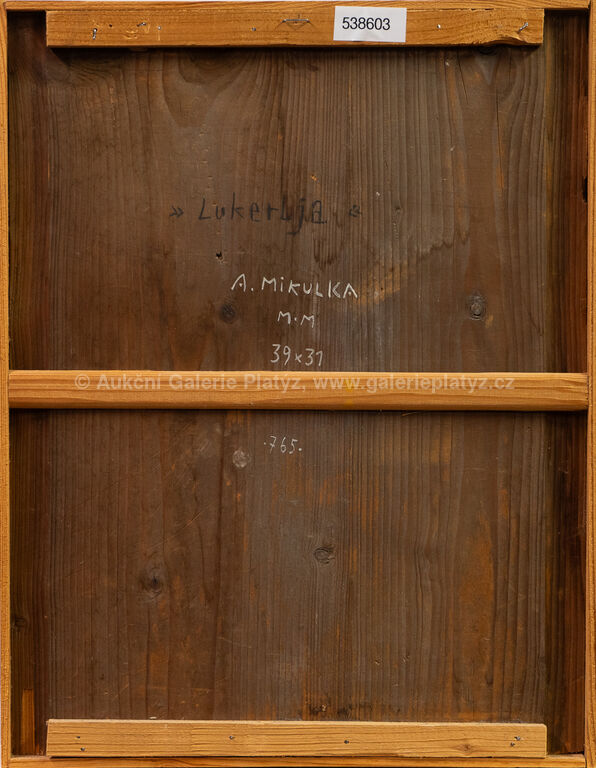 538603
» Lukerija «
A. MIKULKA
M.M
39x31
© Aukční Galerie Platýz, www.galerieplatyz.cz
.765.